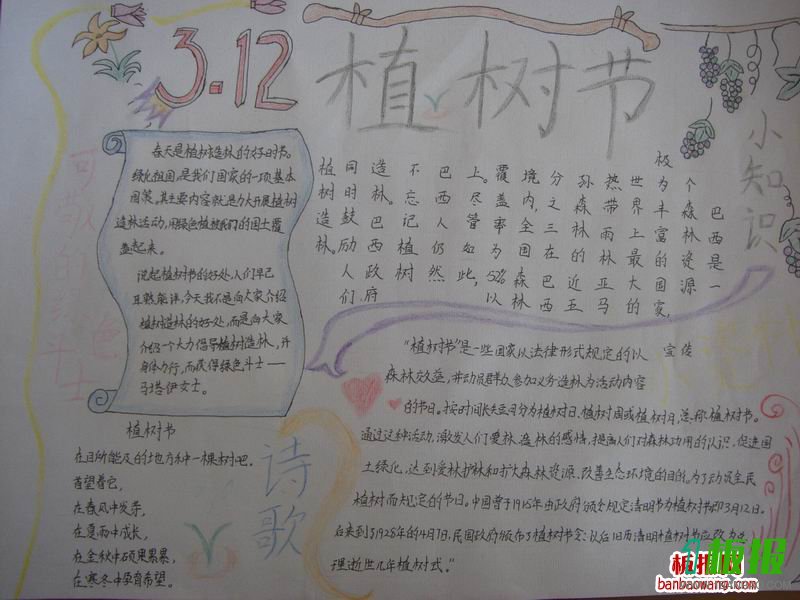 3.12
植树节
小知识
春天是植树造林的好时节。
绿化祖国,是我们国家的一项基本
国策。其主要内容就是大力开展植树
造林活动,用绿色植被我们的国土覆
盖起来。
说起植树节的好处,人们早已
耳熟能详,今天我不是向大家介绍
植树造林的好处,而是向大家
介绍一个大力倡导植树造林,并
身体力行,而获得绿色斗士——
马塔伊女士。
巴西是一
个森林资源
极为丰富的国家,
世界上最大的
热带雨林亚马
孙森林的近五
分之三在巴西
境内,全国森林
覆盖率为52%以
上。尽管如此,
巴西人仍然
不忘记植树
造林。巴西政府
同时鼓励人们
植树造林。
“植树节”是一些国家以法律形式规定的以 宣传
森林效益,并动员群众参加义务造林为活动内容
的节日。按时间长短可分为植树日、植树周或植树月,总称植树节。
通过这种活动,激发人们爱林、造林的感情,提高人们对森林功用的认识,促进国
土绿化,达到爱林护林和扩大森林资源、改善生态环境的目的。为了动员全民
植树而规定的节日。中国曾于1915年由政府规定清明节为植树节 3月12日。
后来到了1928年的4月7日,民国政府颁布了植树节令:以后旧历清明植树节应改为总
理逝世几年植树式。”
植树节
在目所能及的地方种一棵树吧,
看望着它,
在春风中发芽,
在夏雨中成长,
在金秋中硕果累累,
在寒冬中孕育希望。
诗歌
板报网
banbaowang.com